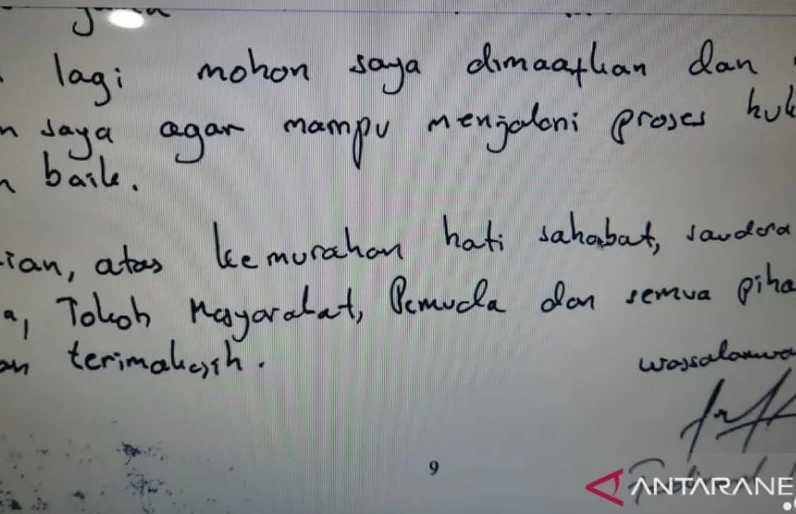 lagi mohon saya dimaafkan dan
saya agar mampu menjalani proses huk
baik.
ian, atas kemurahan hati sahabat, saudara
a, Tokoh Masyarakat, Pemuda dan semua piha
an terimakasih.
wassalamua
9
ANTARANE